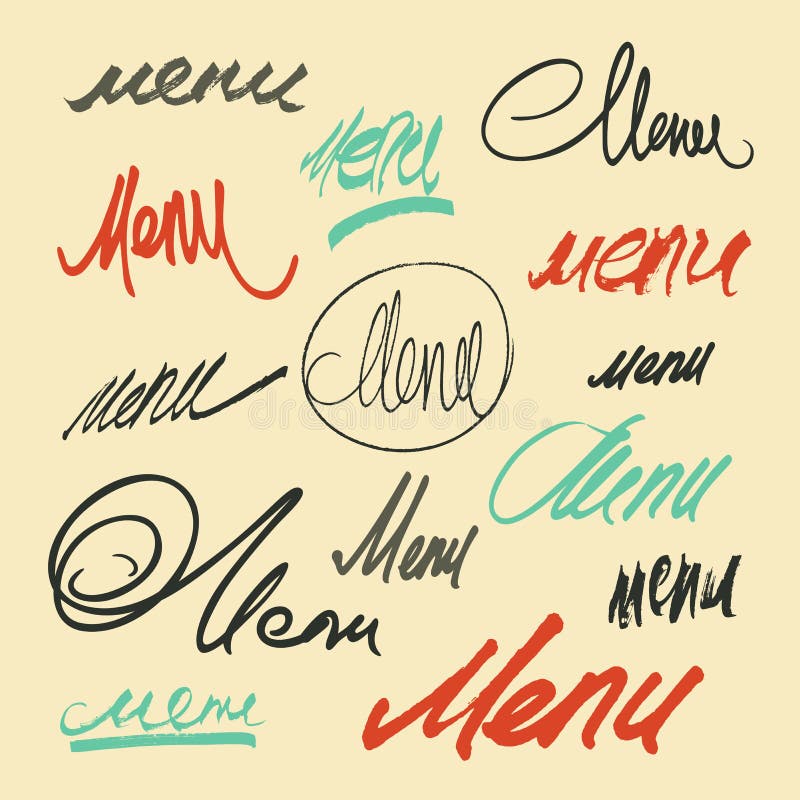 menu
Menu
Menu
Menu
menu
Menu
menu
menu
Menu
Menu
Menu
menu
Menu
menu
dreamstime